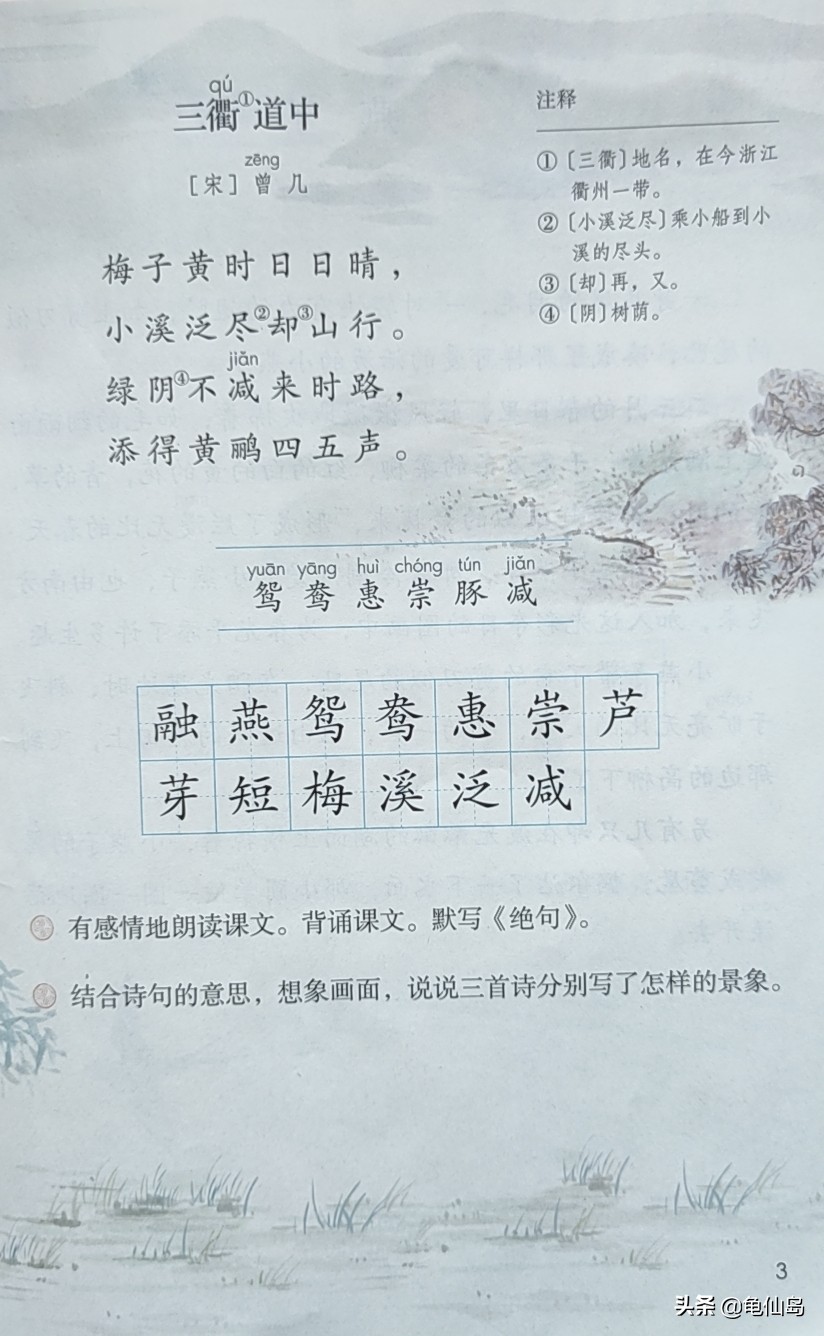 qú
三衢①道中
zēng
[宋] 曾 几
梅子黄时日日晴，
小溪泛尽②却③山行。
jiǎn
绿阴④不减来时路，
添得黄鹂四五声。
注释
①〔三衢〕地名，在今浙江
衢州一带。
②〔小溪泛尽〕乘小船到小
溪的尽头。
③〔却〕再，又。
④〔阴〕树荫。
yuān yāng huì chóng tún jiǎn
鸳 鸯 惠 崇 豚 减
融 燕 鸳 鸯 惠 崇 芦
芽 短 梅 溪 泛 减
有感情地朗读课文。背诵课文。默写《绝句》。
结合诗句的意思，想象画面，说说三首诗分别写了怎样的景象。
3
头条 @龟仙岛